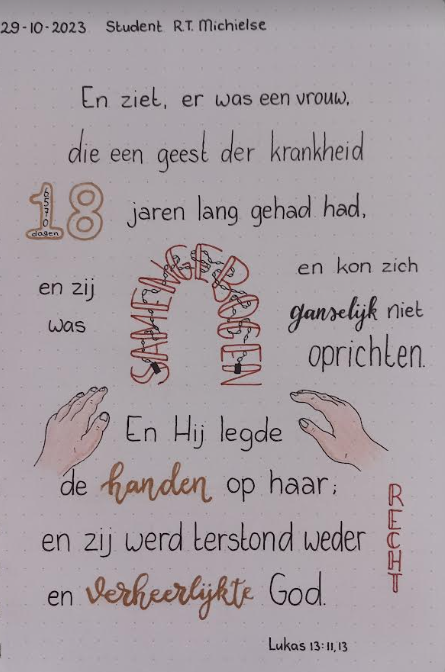 29-10-2023 Student R.T. Michielse
En ziet, er was een vrouw,
die een geest der krankheid
18 jaren lang gehad had,
6570
dagen
en zij
was
SAMENGEBOGEN
en kon zich
ganselijk niet
oprichten.
En Hij legde
de handen op haar;
en zij werd terstond weder
RECHT
en verheerlijkte God.
Lukas 13:11,13